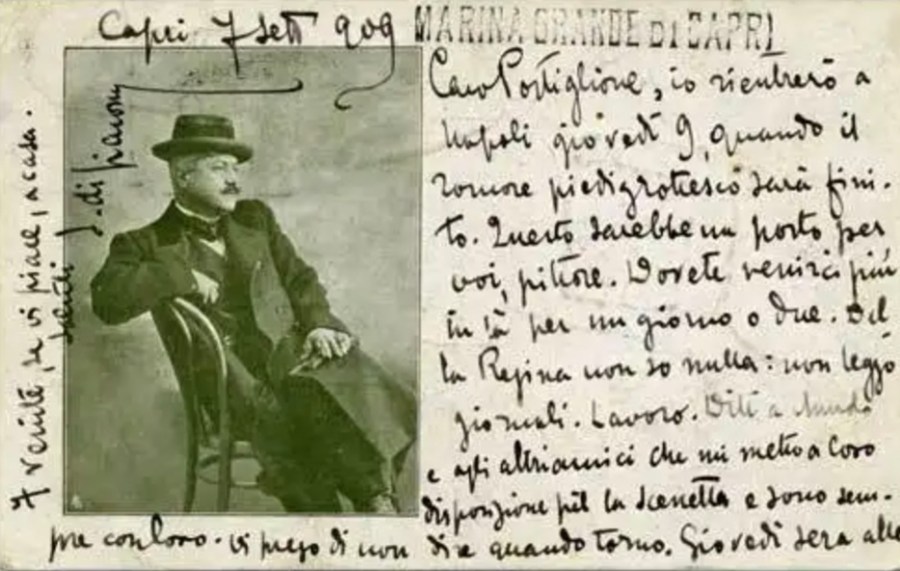 Capri 7 Sett 909
MARINA GRANDE DI CAPRI
Caro Postiglione, io rientrerò a
Napoli giovedì 9, quando il
romore piedigrottesco sarà fini-
to. Questo sarebbe un posto per
voi, pittore. Dovete venirci più
in là per un giorno o due. Del
la Regina non so nulla: non leggo
giornali. Lavoro. Dite a
e agli altri amici che mi metto a loro
disposizione per la scenetta e sono sem-
pre con loro. Vi prego di non dire quando torno. Giovedì sera alle
7 venite, se vi piace, a casa.
Saluti S. di Giacomo